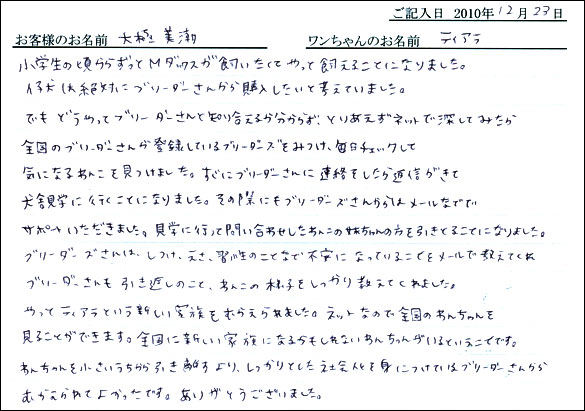 ご記入日 2010年12月23日
お客様のお名前 大極 美潮 ワンちゃんのお名前 ティアラ
小学生の頃からずっとMダックスが飼いたくてやっと飼えることになりました。
仔犬は絶対にブリーダーさんから購入したいと考えていました。
でも どうやってブリーダーさんと知り合えるか分からず、とりあえずネットで探してみたら
全国のブリーダーさんが登録しているブリーダーズをみつけ、毎日チェックして
気になるわんこを見つけました。すぐにブリーダーさんに連絡をしたら返信がきて
犬舎見学に行くことになりました。その際にもブリーダーズさんからはメールなどで
サポートいただきました。見学に行って問い合わせしたわんこの妹ちゃんの方を引きとることになりました。
ブリーダーズさんは、しつけ、えさ、習性のことなどで不安になっていることをメールで教えてくれ
ブリーダーさんも引き渡しのこと、わんこの様子をしっかり教えてくれました。
やっとティアラという新しい家族をむかえられました。ネットなので全国のわんちゃんを
見ることができます。全国に新しい家族になるかもしれないわんちゃんがいるということです。
わんちゃんを小さいうちから引き離すより、しっかりとした社会化を身につけているブリーダーさんから
むかえられてよかったです。ありがとうございました。